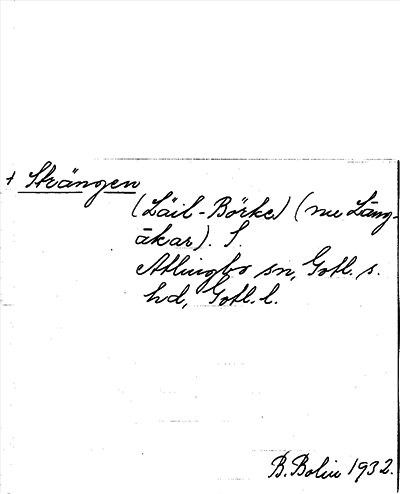 + Strängen
(Läil-Börke) (nu Läng-
åkar). S.
Atlingbo sn, Gotl. s.
hd, Gotl. l.
B. Bolin 1932.